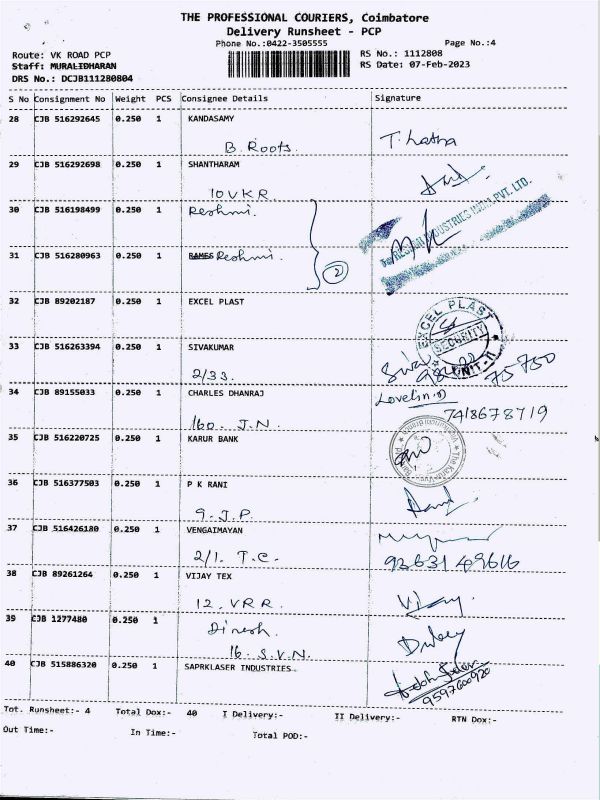 THE PROFESSIONAL COURIERS, Coimbatore
Delivery Runsheet - PCP
Phone No.:0422-3505555 Page No.:4
Route: VK ROAD PCP RS No.: 1112808
Staff: MURALIDHARAN RS Date: 07-Feb-2023
DRS No.: DCJB111280804
S No Consignment No Weight PCS Consignee Details Signature
28 CJB 516292645 0.250 1 KANDASAMY
B. Roots. T. Latha
29 CJB 516292698 0.250 1 SHANTHARAM
10 V.K.R.
30 CJB 516198499 0.250 1 Reshmi.
INDUSTRIES INDIA PVT. LTD.
31 CJB 516280963 0.250 1 RAMES Reshmi.
2
32 CJB 89202187 0.250 1 EXCEL PLAST
EXCEL PLAST
SECURITY
UNIT-II
33 CJB 516263394 0.250 1 SIVAKUMAR
2/33. Siva
75750
34 CJB 89155033 0.250 1 CHARLES DHANRAJ Lovelin
160. J.N. 7418678719
35 CJB 516220725 0.250 1 KARUR BANK
36 CJB 516377503 0.250 1 P K RANI
9. J.P.
37 CJB 516426180 0.250 1 VENGAIMAYAN
2/1. T.C. 9263149616
38 CJB 89261264 0.250 1 VIJAY TEX
12. V.R.R. Vijay
39 CJB 1277480 0.250 1 Dinesh.
16. S.V.N.
40 CJB 515886320 0.250 1 SAPRKLASER INDUSTRIES
9597600920
Tot. Runsheet:- 4 Total Dox:- 40 I Delivery:- II Delivery:- RTN Dox:-
Out Time:- In Time:- Total POD:-